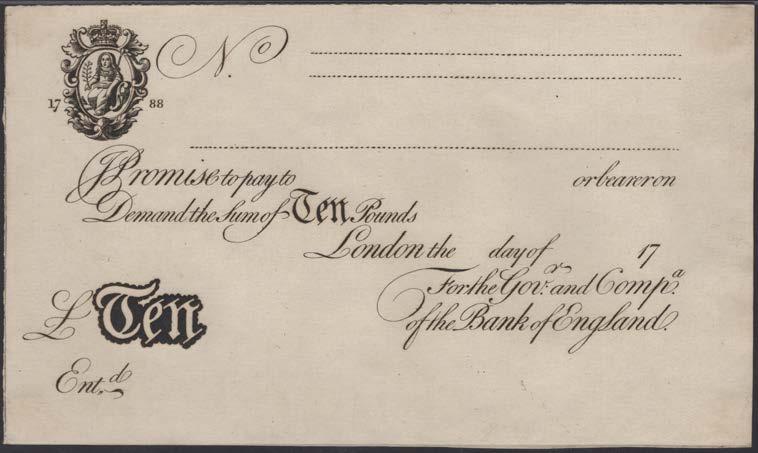 No
17 88
I Promise to pay to or bearer on
Demand the Sum of Ten Pounds
London the day of 17
For the Gov.r and Comp.a
of the Bank of England.
£ Ten
Ent.d